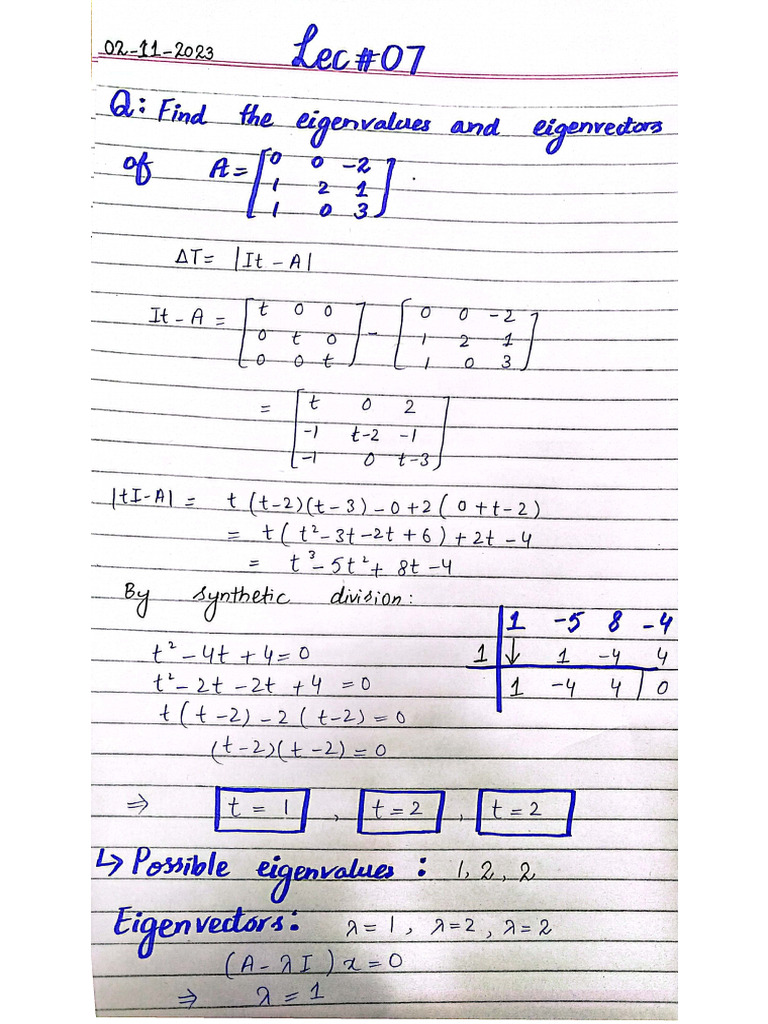 02-11-2023 Lec#07
Q: Find the eigenvalues and eigenvectors
of A = [0 0 -2
1 2 1
1 0 3].
ΔT = |It - A|
It - A = [t 0 0
0 t 0
0 0 t] - [0 0 -2
1 2 1
1 0 3]
= [t 0 2
-1 t-2 -1
-1 0 t-3]
|tI-A| = t(t-2)(t-3) - 0 + 2(0+t-2)
= t(t²-3t-2t+6)+2t-4
= t³-5t²+8t-4
By synthetic division:
1 -5 8 -4
1 ↓ 1 -4 4
1 -4 4 | 0
t²-4t+4=0
t²-2t-2t+4=0
t(t-2)-2(t-2)=0
(t-2)(t-2)=0
⇒ t=1, t=2, t=2
↳ Possible eigenvalues: 1, 2, 2
Eigenvectors: λ=1, λ=2, λ=2
(A-λI)x=0
⇒ λ=1